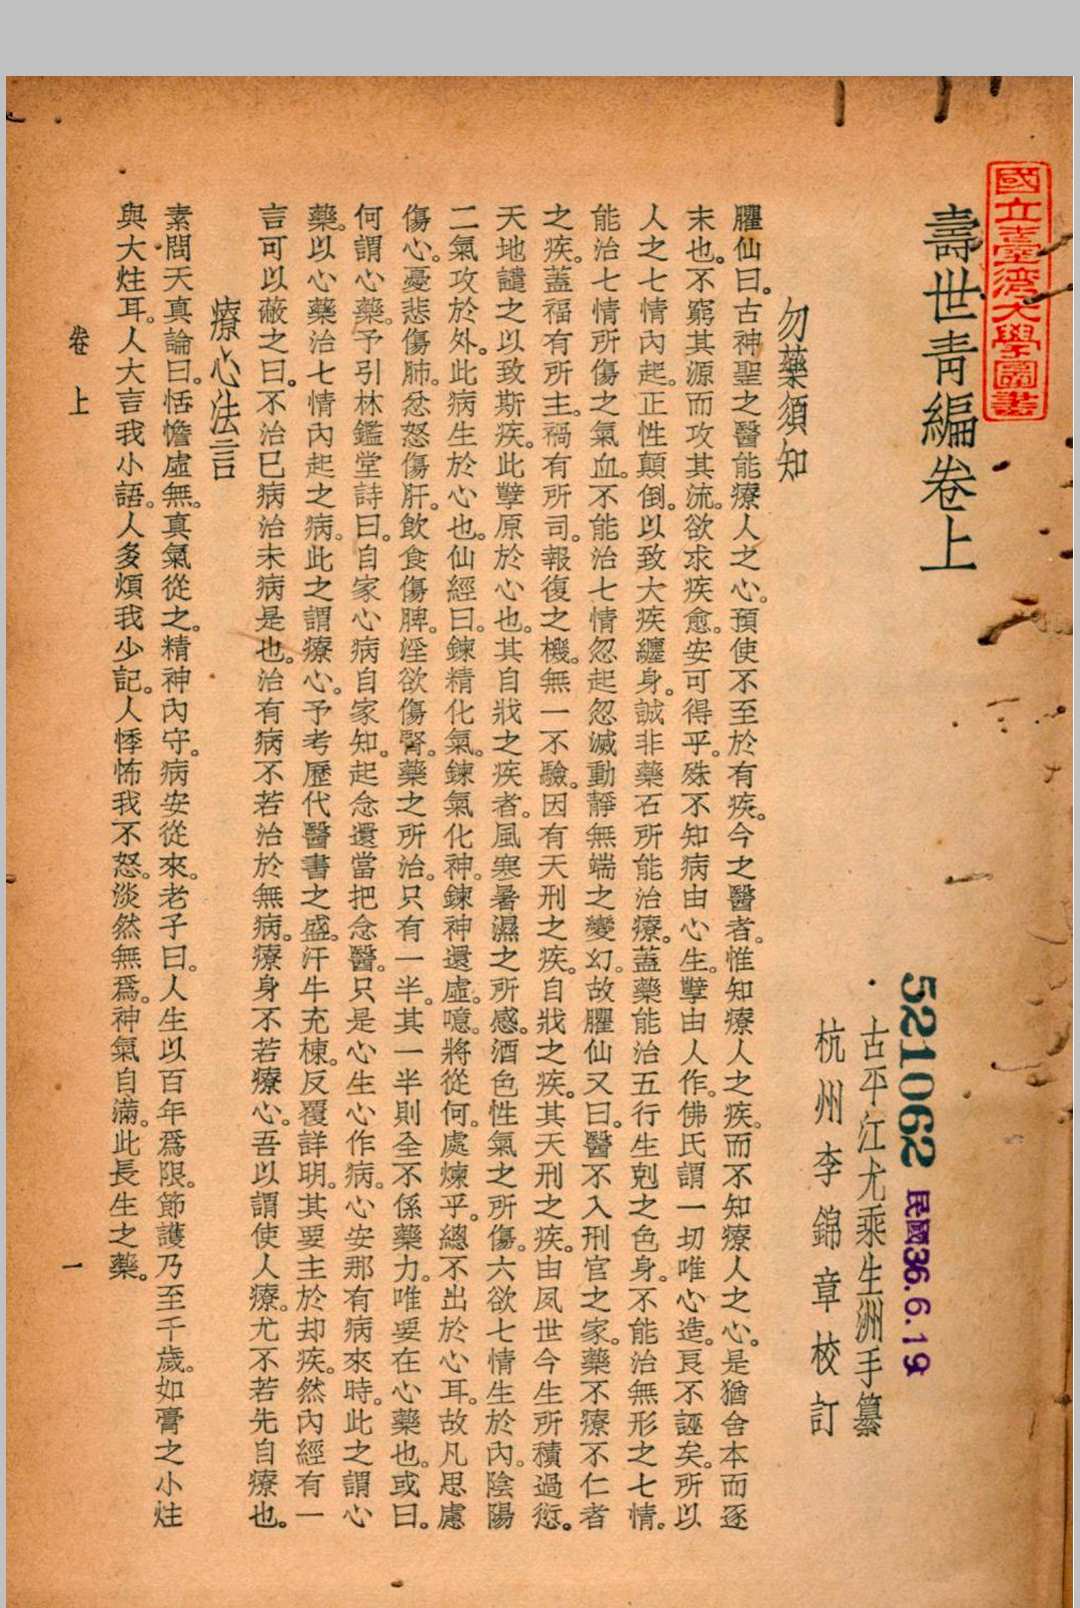 國立臺灣大學圖書
壽世青編卷上
521062
民國36.6.19
古平江尤乘生洲手纂
杭州李錦章校訂
勿藥須知
臞仙曰。古神聖之醫能療人之心。預使不至於有疾。今之醫者。惟知療人之疾。而不知療人之心。是猶舍本而逐
末也。不窮其源而攻其流。欲求疾愈。安可得乎。殊不知病由心生。孽由人作。佛氏謂一切唯心造。良不誣矣。所以
人之七情內起。正性顛倒。以致大疾纏身。誠非藥石所能治療。蓋藥能治五行生剋之色身。不能治無形之七情。
能治七情所傷之氣血。不能治七情忽起忽滅動靜無端之變幻。故臞仙又曰。醫不入刑官之家。藥不療不仁者
之疾。蓋福有所主。禍有所司。報復之機。無一不驗。因有天刑之疾。自戕之疾。其天刑之疾。由夙世今生所積過愆。
天地譴之以致斯疾。此孽原於心也。其自戕之疾者。風寒暑濕之所感。酒色性氣之所傷。六欲七情生於內。陰陽
二氣攻於外。此病生於心也。仙經曰。鍊精化氣。鍊氣化神。鍊神還虛。噫。將從何處煉乎。總不出於心耳。故凡思慮
傷心。憂悲傷肺。忿怒傷肝。飲食傷脾。淫欲傷腎。藥之所治。只有一半。其一半則全不係藥力。唯要在心藥也。或曰。
何謂心藥。予引林鑑堂詩曰。自家心病自家知。起念還當把念醫。只是心生心作病。心安那有病來時。此之謂心
藥。以心藥治七情內起之病。此之謂療心。予考歷代醫書之盛。汗牛充棟。反覆詳明。其要主於却疾。然內經有一
言可以蔽之曰。不治已病治未病是也。治有病不若治於無病。療身不若療心。吾以謂使人療。尤不若先自療也。
療心法言
素問天真論曰。恬憺虛無。真氣從之。精神內守。病安從來。老子曰。人生以百年為限。節護乃至千歲。如膏之小炷
與大炷耳。人大言我小語。人多煩我少記。人悸怖我不怒。淡然無為。神氣自滿。此長生之藥。
卷上
一